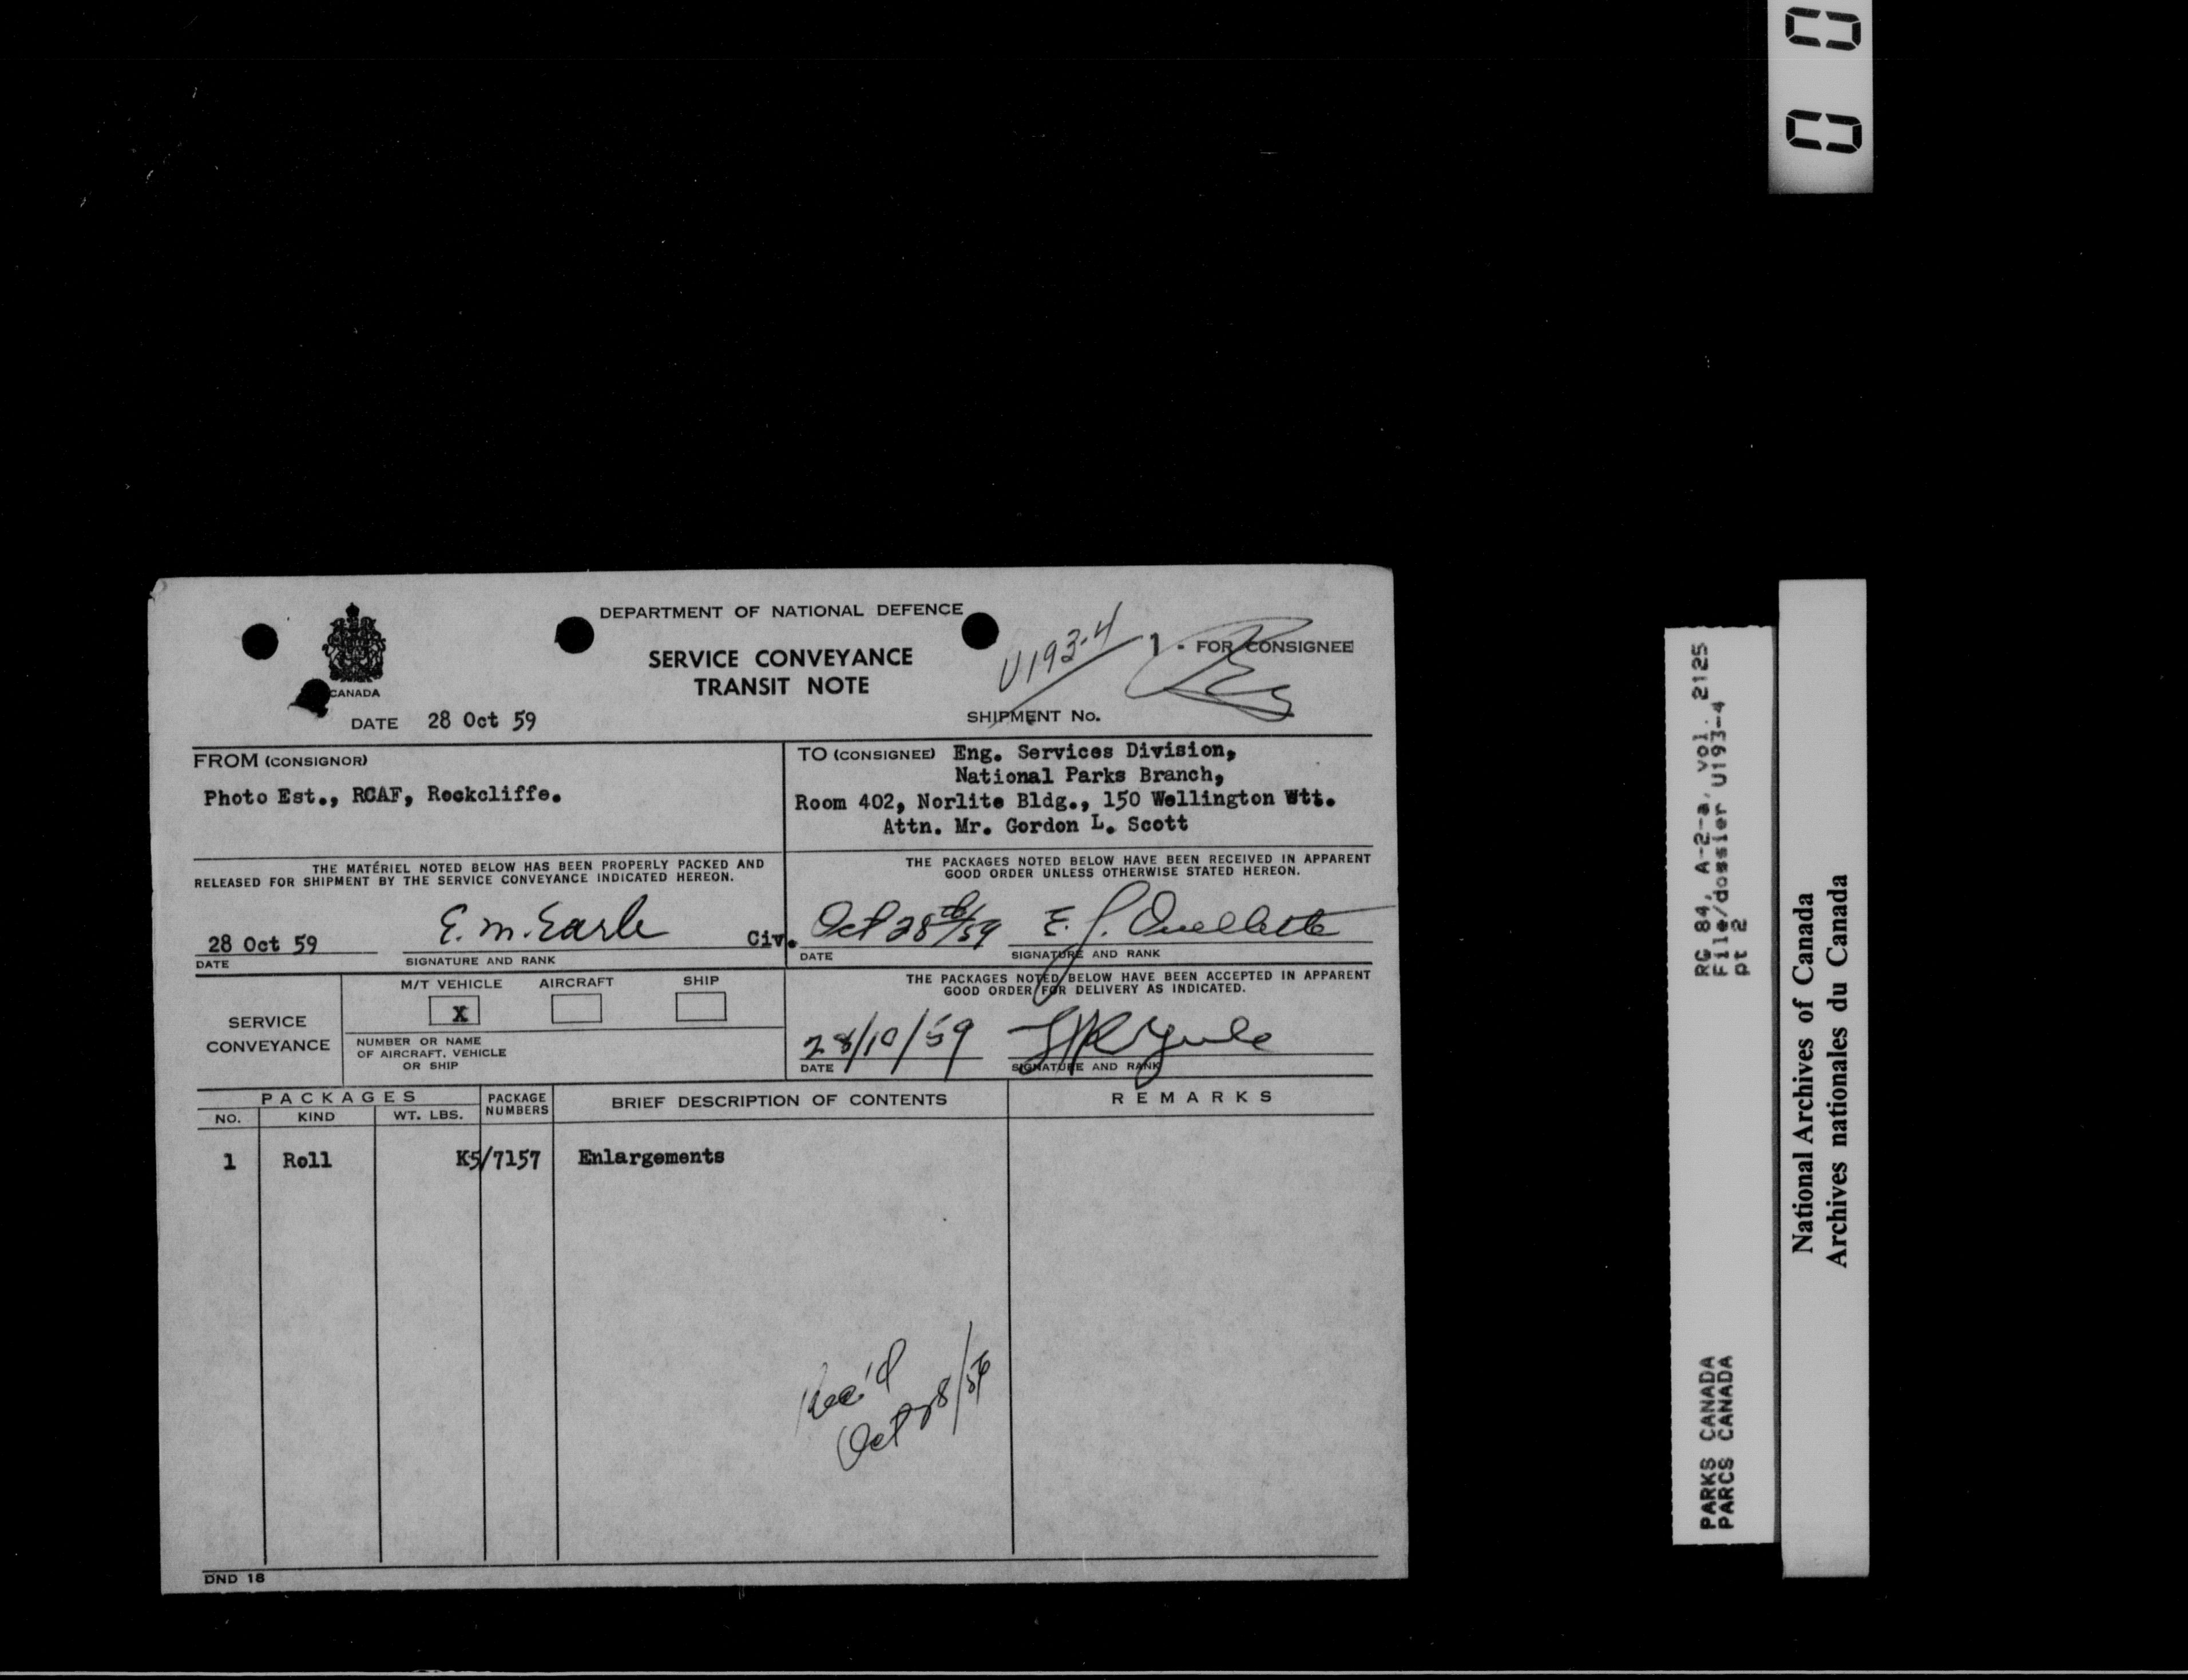 DEPARTMENT OF NATIONAL DEFENCE
SERVICE CONVEYANCE
TRANSIT NOTE
U193-4
1 - FOR CONSIGNEE
CANADA
DATE 28 Oct 59
SHIPMENT No.
FROM (CONSIGNOR)
Photo Est., RCAF, Rockcliffe.
TO (CONSIGNEE) Eng. Services Division,
National Parks Branch,
Room 402, Norlite Bldg., 150 Wellington Wtt.
Attn. Mr. Gordon L. Scott
THE MATÉRIEL NOTED BELOW HAS BEEN PROPERLY PACKED AND
RELEASED FOR SHIPMENT BY THE SERVICE CONVEYANCE INDICATED HEREON.
28 Oct 59 E. M. Earle Civ.
DATE SIGNATURE AND RANK
THE PACKAGES NOTED BELOW HAVE BEEN RECEIVED IN APPARENT
GOOD ORDER UNLESS OTHERWISE STATED HEREON.
Oct 28th/59 E. J. Ouellette
DATE SIGNATURE AND RANK
SERVICE
CONVEYANCE
M/T VEHICLE AIRCRAFT SHIP
X
NUMBER OR NAME
OF AIRCRAFT, VEHICLE
OR SHIP
THE PACKAGES NOTED BELOW HAVE BEEN ACCEPTED IN APPARENT
GOOD ORDER FOR DELIVERY AS INDICATED.
28/10/59 Yule
DATE SIGNATURE AND RANK
PACKAGES
NO. KIND WT. LBS.
PACKAGE
NUMBERS
BRIEF DESCRIPTION OF CONTENTS
REMARKS
1 Roll K5/7157 Enlargements
Rec'd
Oct 28/59
DND 18
RG 84, A-2-a, vol. 2125
File/dossier U193-4
pt 2
PARKS CANADA
PARCS CANADA
National Archives of Canada
Archives nationales du Canada
0 0